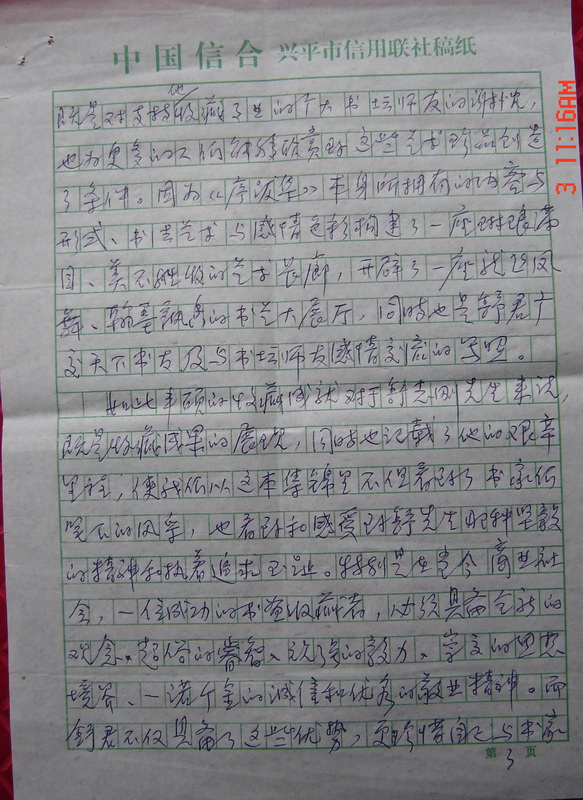 中国信合 兴平市信用联社稿纸
既是对支持他收藏事业的广大书坛师友的谢忱，
也为更多的人们能够欣赏到这些艺术珍品创造
了条件。因为《序源华》本身所拥有的内容与
形式、书法艺术与感情色彩构建了一座琳琅满
目、美不胜收的艺术长廊，开辟了一座龙飞凤
舞、翰墨飘香的书艺大展厅，同时也是舒君广
交天下书友及与书坛师友感情交流的写照。
如此丰硕的收藏成就对于舒先生来说，
既是收藏成果的展现，同时也记载了他的艰辛
里程，使我们从这本集锦里不但看到了书家们
笔下的风采，也看到和感受到舒先生那种坚毅
的精神和执着追求。特别是在当今商业社
会，一位成功的书画收藏者，必须具备全新的
观念、超俗的睿智、顽强的毅力、崇高的思想
境界、一诺千金的诚信和优秀的敬业精神。而
舒君不仅具备了这些优势，更珍惜自己与书家
第 3 页
3 11:16AM